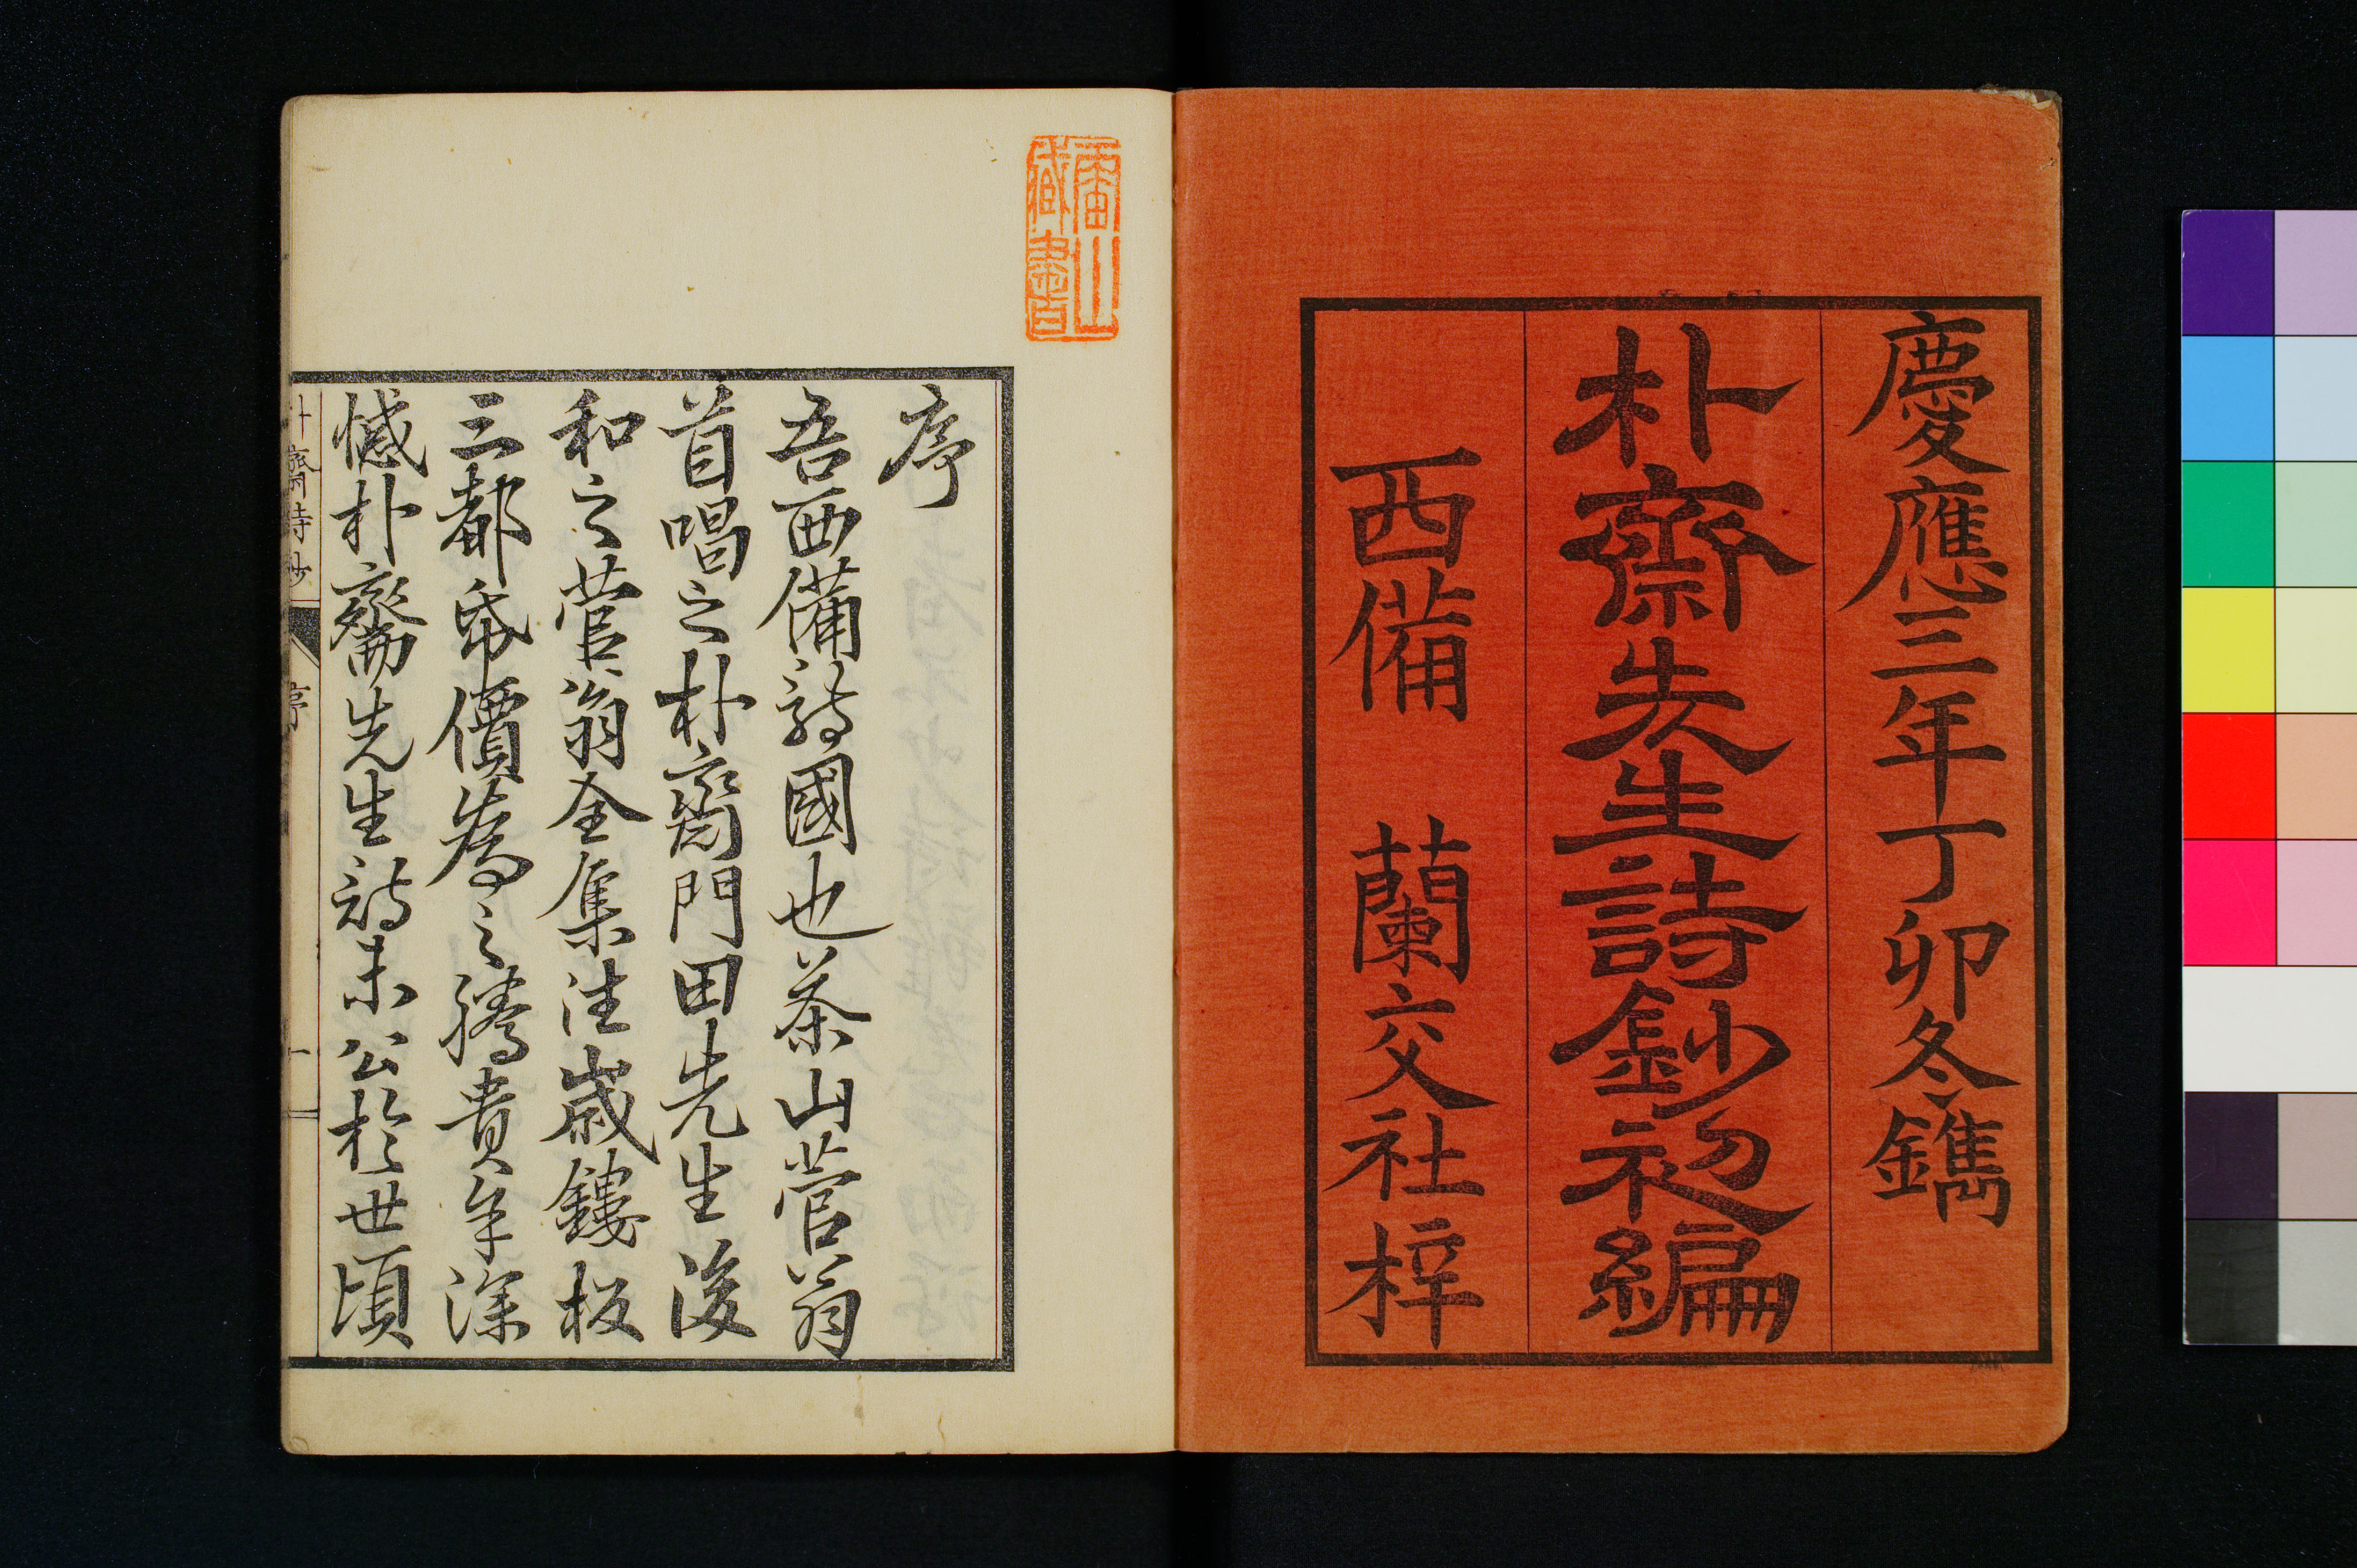 慶應三年丁卯冬鐫
朴齋先生詩鈔初編
西備 蘭交社梓
序
吾西備詩國也茶山菅翁
首唱之朴齋門田先生後
和之菅翁全集往歲鏤板
三都帋價為之騰貴年深
憾朴齋先生詩未公於世頃
朴齋詩鈔 序 一
山
藏書